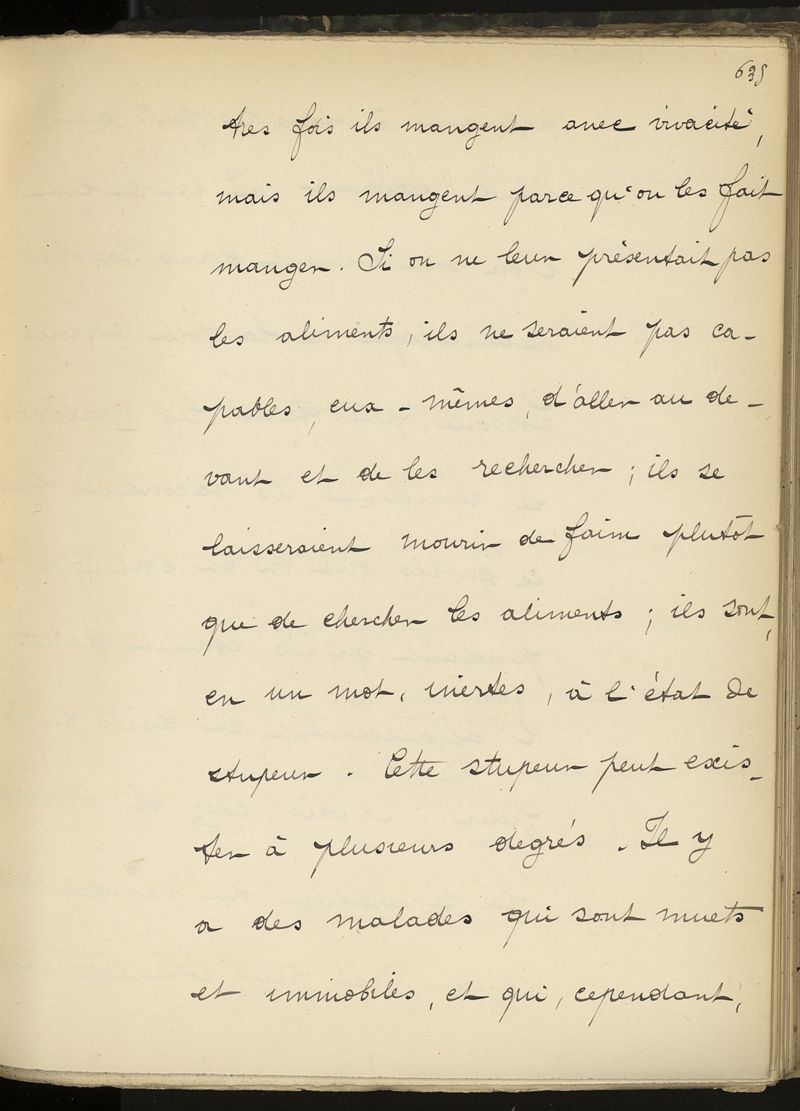 635
tres fois ils mangent avec vivacité,
mais ils mangent parce qu'on les fait
manger. Si on ne leur présentait pas
les aliments, ils ne seraient pas ca-
pables, eux-mêmes, d'aller au de-
vant et de les rechercher ; ils se
laisseraient mourir de faim plutôt
que de chercher les aliments ; ils sont,
en un mot, inertes, à l'état de
stupeur. Cette stupeur peut exis-
ter à plusieurs degrés. Il y
a des malades qui sont muets
et immobiles, et qui, cependant,